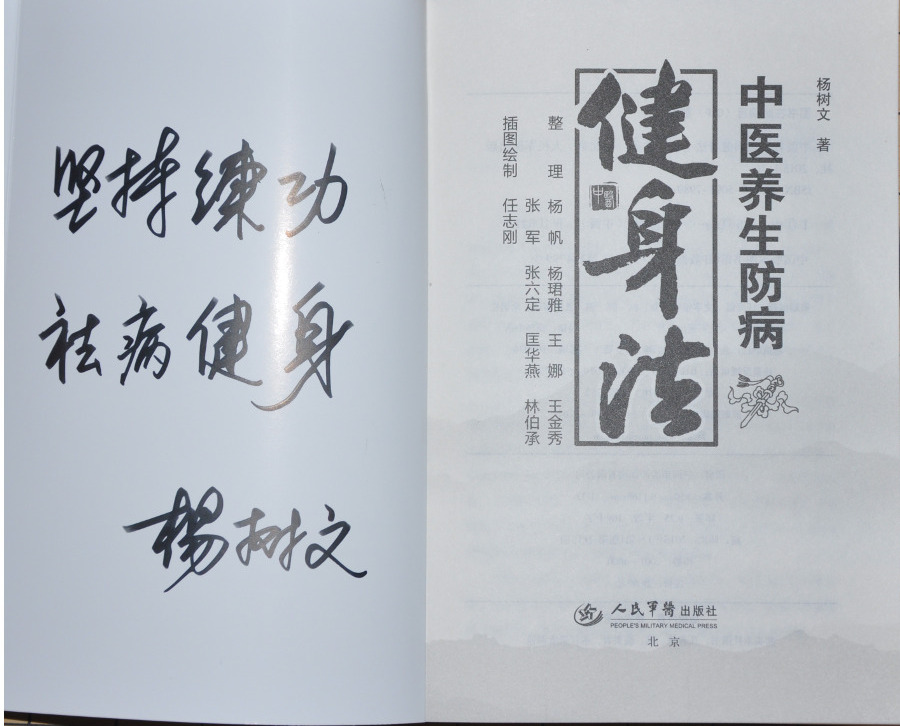 坚持练功
祛病健身
杨树文
杨树文 著
中医养生防病
健身法
中醫
整理 杨帆 杨珺雅 王娜 王金秀
张军 张六定 匡华燕 林伯承
插图绘制 任志刚
人民军醫出版社
PEOPLE'S MILITARY MEDICAL PRESS
北京